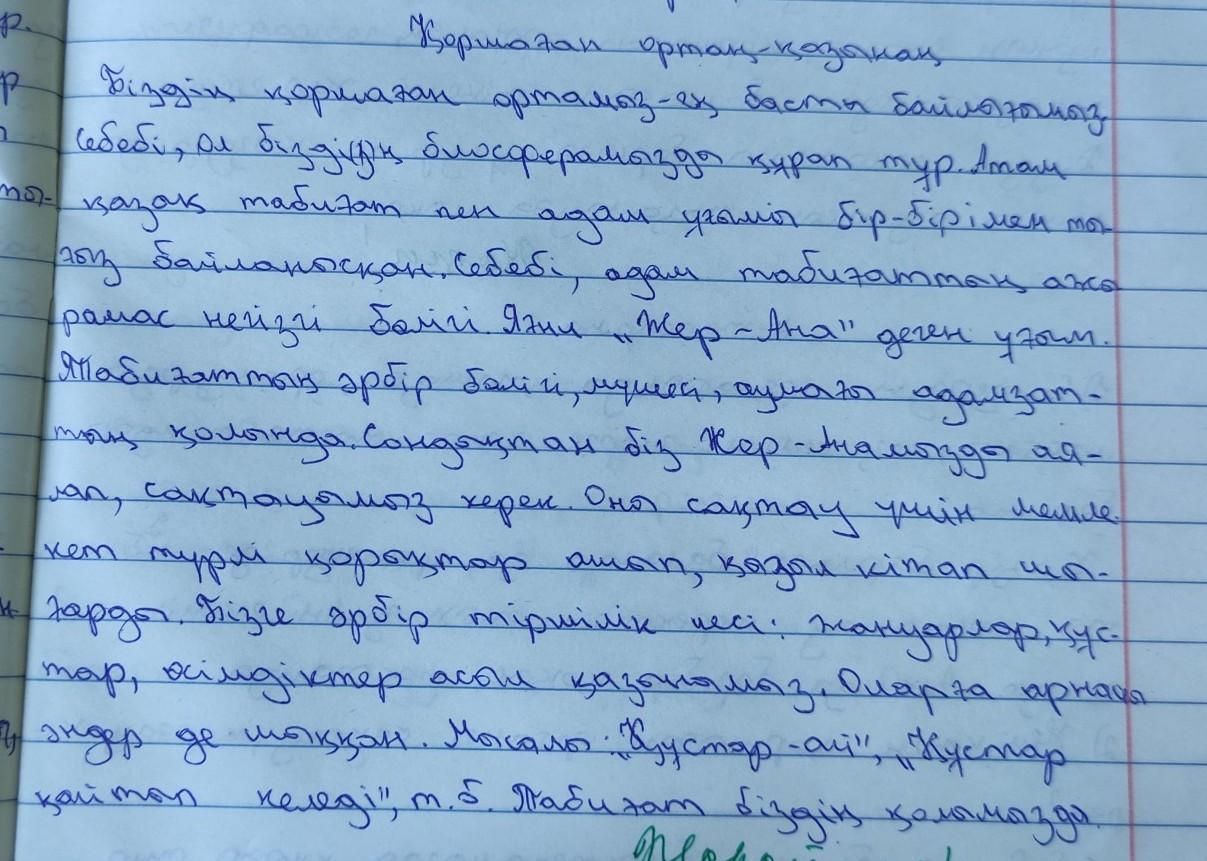 Қоршаған ортаң-қазынаң
Біздің қоршаған ортамыз-ең басты байлығымыз.
Себебі, ол біздің биосферамызды құрап тұр. Атам
қазақ табиғат пен адам ұғымы бір-бірімен ты-
ғыз байланысқан. Себебі, адам табиғаттың ажы
рамас негізгі бөлігі. Яғни „Жер-Ана" деген ұғым.
Табиғаттың әрбір бөлігі, мүшесі, аумағы адамзат-
тың қолында. Сондықтан біз Жер-Анамызды ая-
лап, сақтауымыз керек. Оны сақтау үшін мемле
кет түрлі қорықтар ашып, қызыл кітап шы-
ғарды. Бізге әрбір тіршілік иесі: жануарлар, құс-
тар, өсімдіктер асыл қазынамыз. Оларға арнаулы
әндер де шыққан. Мысалы: „Құстар-ай", „Құстар
қайтып келеді", т.б. Табиғат біздің қолымызда.